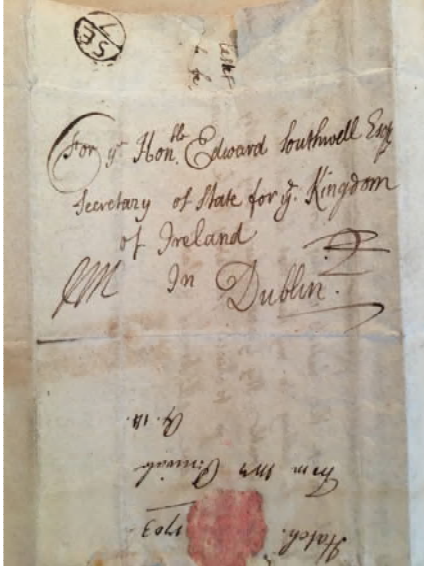 7
SE
For yr Honble. Edward Southwell Esqr
Secretary of State for ye. Kingdom
of Ireland
In Dublin.
From Mr
Hatch. 1703